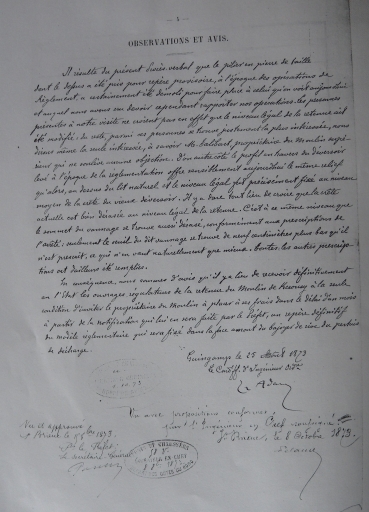 — 4 —
OBSERVATIONS ET AVIS.
Il résulte du présent Procès-verbal que le pilier en pierre de taille
dont le dessus a été pris pour repère provisoire, à l'époque des opérations de
Règlement, a certainement été démoli pour faire place à celui qu'on voit aujourd'hui
et auquel nous avons cru devoir cependant rapporter nos opérations. Les personnes
présentes à notre visite ne croient pas en effet que le niveau légal de la retenue ait
été modifié. Du reste, parmi ces personnes se trouve justement la plus intéressée, nous
dirons même la seule intéressée, à savoir Me propriétaire du Moulin supé-
rieur qui ne soulève aucune objection. D'un autre côté le profil en travers du déversoir
levé à l'époque de la réglementation offre sensiblement aujourd'hui le même relief
qu'alors, au dessus du lit naturel et le niveau légal fut précisément fixé au niveau
moyen de la crête du vieux déversoir. Il y a donc tout lieu de croire que la crête
actuelle est bien dérasée au niveau légal de la retenue. C'est à ce même niveau que
le sommet du vannage se trouve aussi dérasé, conformément aux prescriptions de
l'arrêté; seulement le seuil du dit vannage se trouve de neuf centimètres plus bas qu'il
n'est prescrit, ce qui n'en vaut naturellement que mieux. Toutes les autres prescrip-
tions ont d'ailleurs été remplies.
En conséquence, nous sommes d'avis qu'il y a lieu de recevoir définitivement
en l'état les ouvrages régulateurs de la retenue du Moulin de à la seule
condition d'inviter le propriétaire du Moulin à placer à ses frais dans le délai d'un mois
à partir de la notification qui lui en sera faite par le Préfet, un repère définitif
du modèle réglementaire qui sera fixé dans la face amont du bajoyer de du pertuis
de décharge.
Guingamp le 25 Août 1873
Le Conduct. d'Ingénieur
Le
Vu avec propositions conformes
Vu et approuvé
St Brieuc, le 8bre 1873
Pr le Préfet
Le Secrétaire Général
St Brieuc, le 8 Octobre 1873